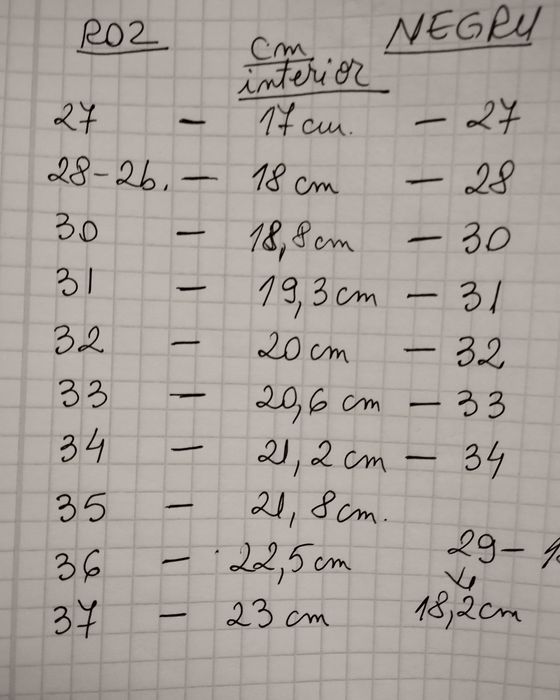 ROZ cm interior NEGRU
27 – 17 cm. – 27
28-2b. – 18 cm – 28
30 – 18,8 cm – 30
31 – 19,3 cm – 31
32 – 20 cm – 32
33 – 20,6 cm – 33
34 – 21,2 cm – 34
35 – 21,8 cm.
36 – 22,5 cm
37 – 23 cm
29 –
18,2 cm